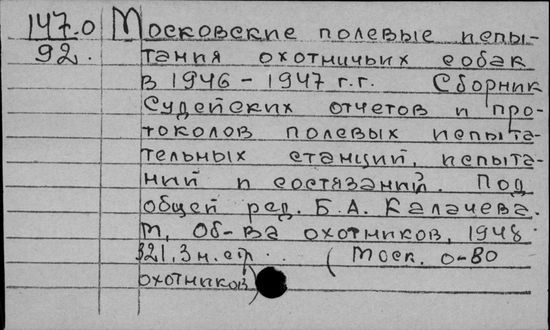 147.0 Московские полевые испы-
92. тания охотничьих собак
в 1946-1947 г.г. Сборник
судейских отчетов и про-
токолов полевых испыта-
тельных станций, испыта-
ний и состязаний. Под
общей ред. Б.А. Калачева.
М, Об-ва охотников, 1948
321, 3 н. стр. (Моск. о-во
охотников)